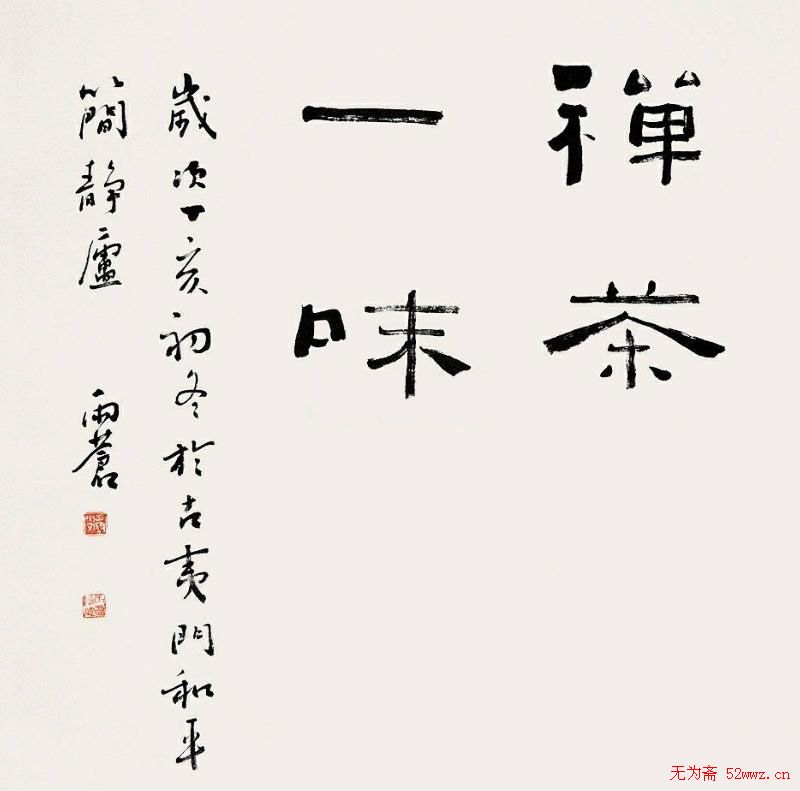 禪茶
一味
歲次丁亥初冬於古夷門和平
簡靜廬 雨蒼
无为斋 52wwz.cn